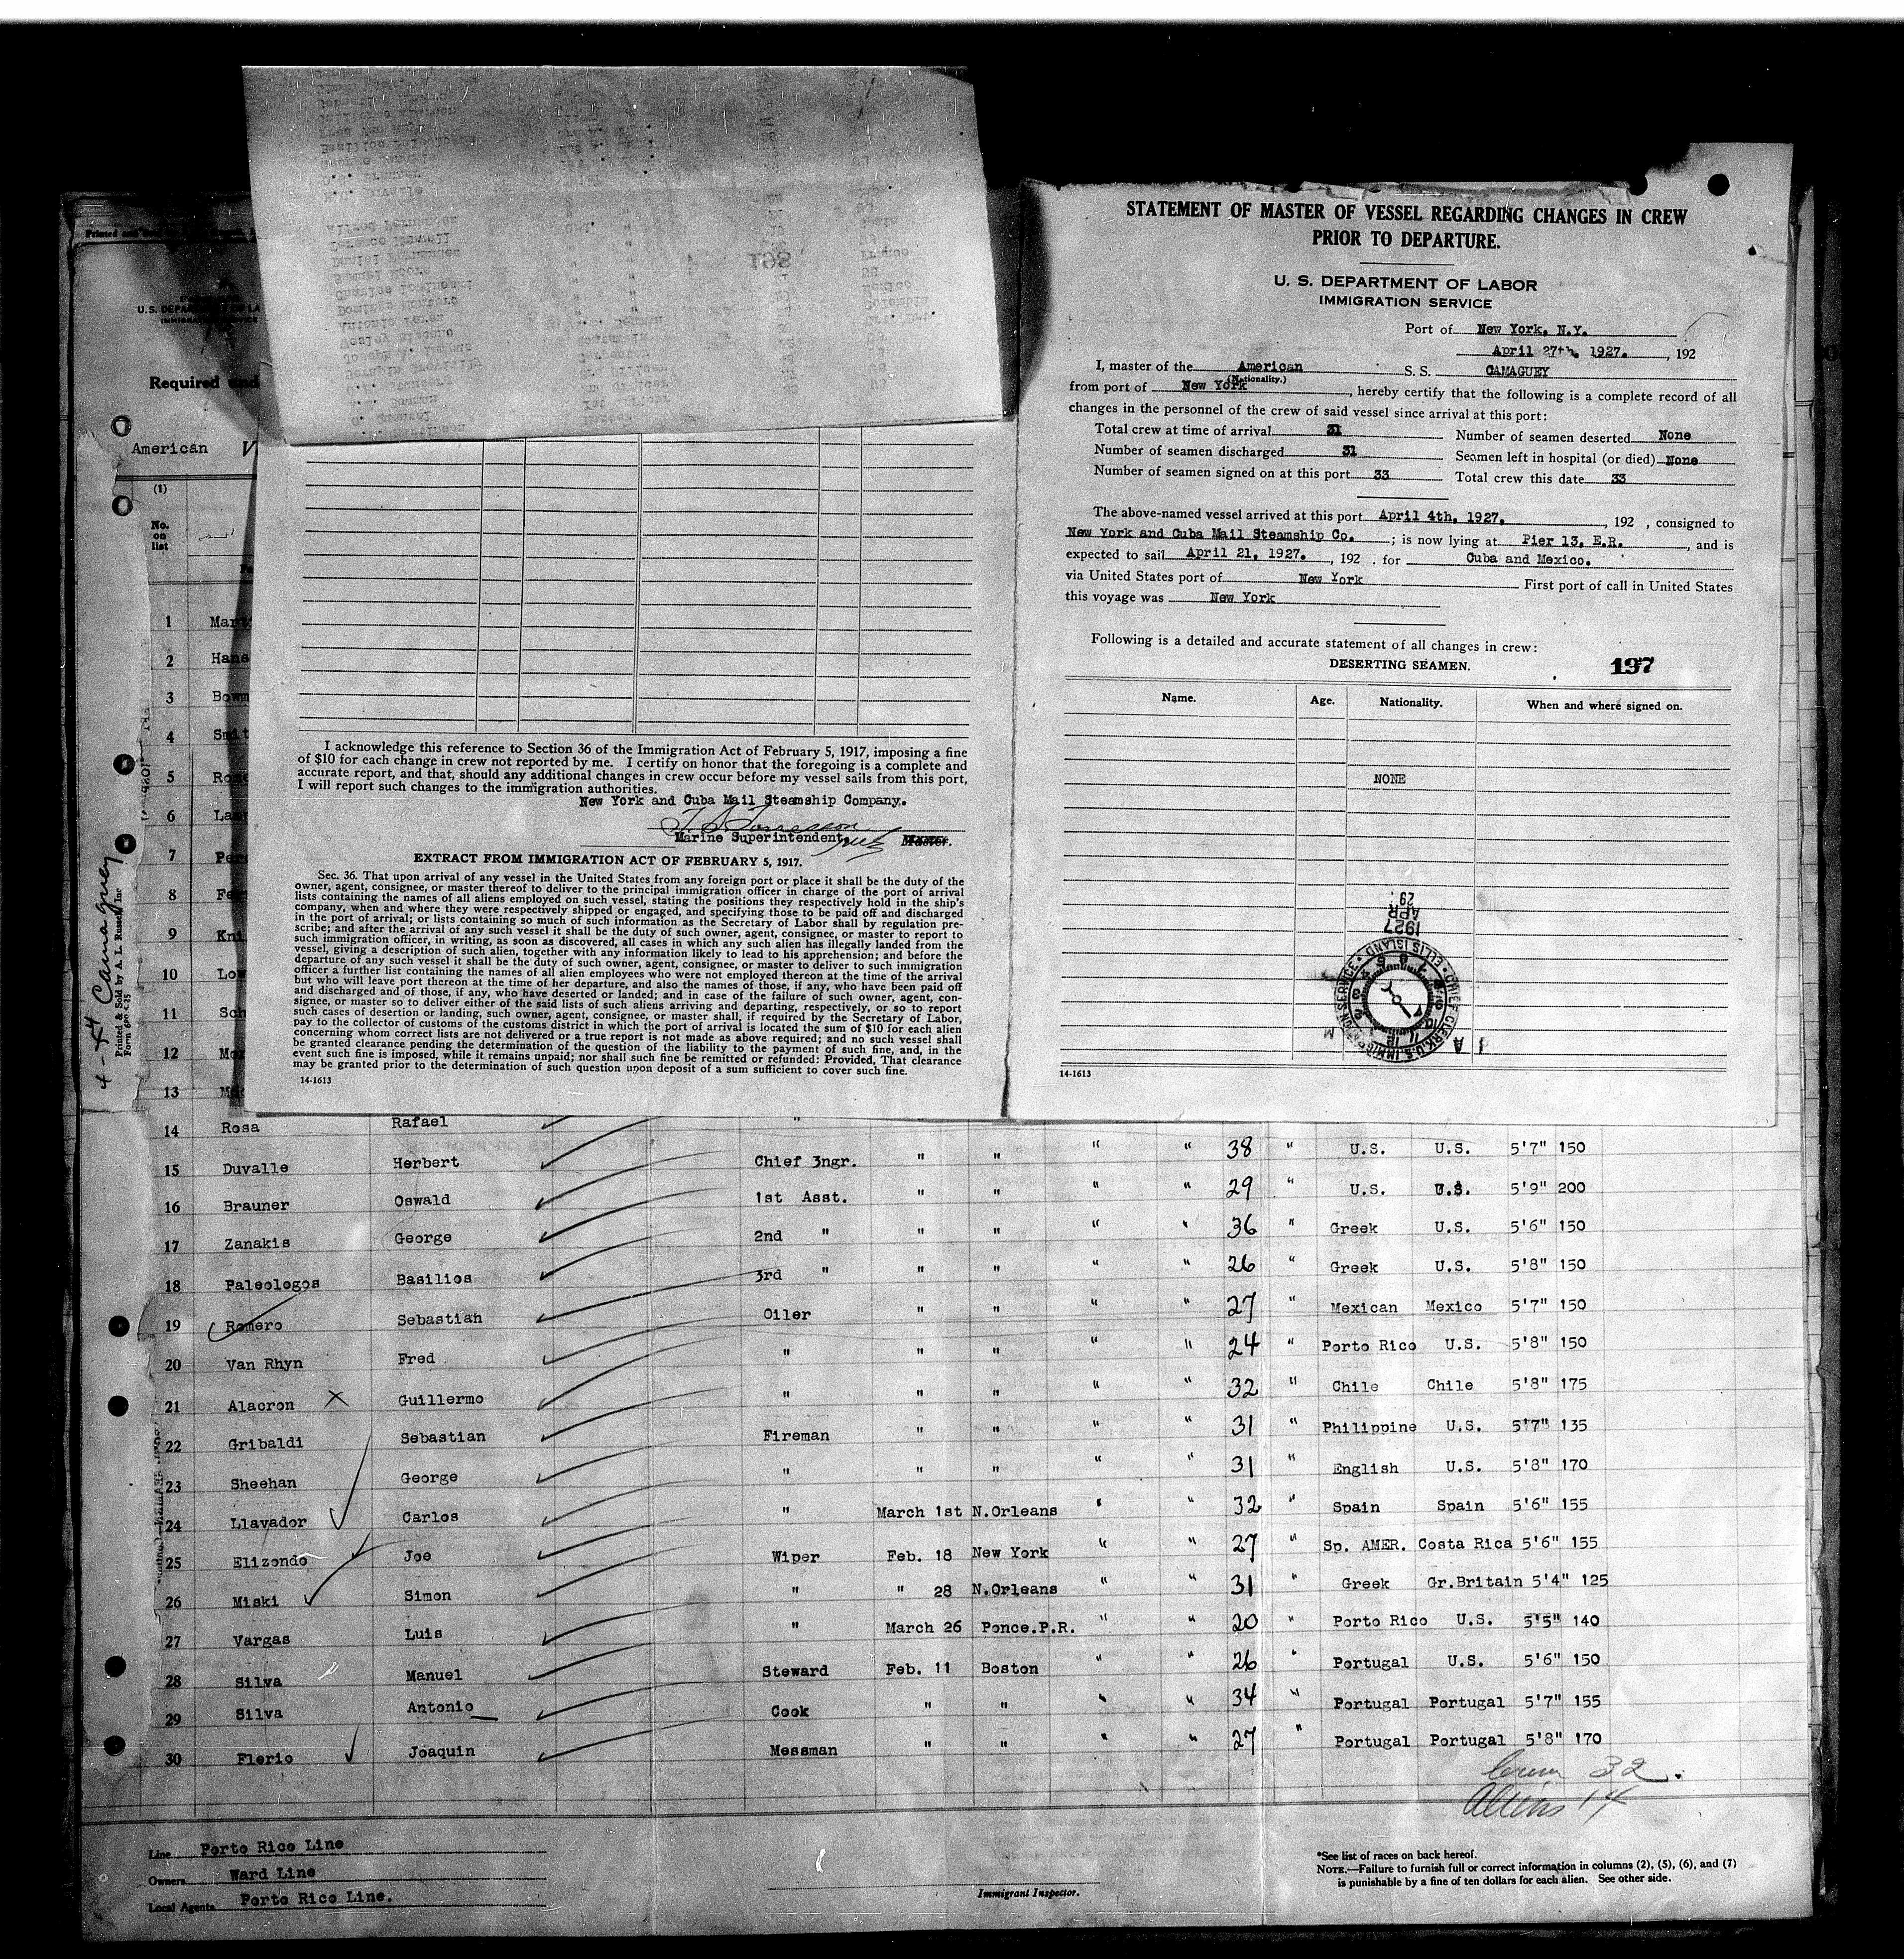 STATEMENT OF MASTER OF VESSEL REGARDING CHANGES IN CREW
PRIOR TO DEPARTURE.
U. S. DEPARTMENT OF LABOR
IMMIGRATION SERVICE
Port of New York, N.Y.
April 27th, 1927. , 192
I, master of the American S. S. CAMAGUEY
(Nationality.)
from port of New York , hereby certify that the following is a complete record of all
changes in the personnel of the crew of said vessel since arrival at this port:
Total crew at time of arrival 31 Number of seamen deserted None
Number of seamen discharged 31 Seamen left in hospital (or died) None
Number of seamen signed on at this port 33 Total crew this date 33
The above-named vessel arrived at this port April 4th, 1927. , 192 , consigned to
New York and Cuba Mail Steamship Co. ; is now lying at Pier 13, E.R. , and is
expected to sail April 21, 1927. , 192 . for Cuba and Mexico.
via United States port of New York First port of call in United States
this voyage was New York
Following is a detailed and accurate statement of all changes in crew:
DESERTING SEAMEN. 197
Name. Age. Nationality. When and where signed on.
NONE
1927
APR
29
CHIEF CLERK, U.S. IMMIGRATION SERVICE • ELLIS ISLAND •
14-1613
I acknowledge this reference to Section 36 of the Immigration Act of February 5, 1917, imposing a fine
of $10 for each change in crew not reported by me. I certify on honor that the foregoing is a complete and
accurate report, and that, should any additional changes in crew occur before my vessel sails from this port,
I will report such changes to the immigration authorities.
New York and Cuba Mail Steamship Company.
Marine Superintendent. Master.
EXTRACT FROM IMMIGRATION ACT OF FEBRUARY 5, 1917.
Sec. 36. That upon arrival of any vessel in the United States from any foreign port or place it shall be the duty of the
owner, agent, consignee, or master thereof to deliver to the principal immigration officer in charge of the port of arrival
lists containing the names of all aliens employed on such vessel, stating the positions they respectively hold in the ship's
company, when and where they were respectively shipped or engaged, and specifying those to be paid off and discharged
in the port of arrival; or lists containing so much of such information as the Secretary of Labor shall by regulation pre-
scribe; and after the arrival of any such vessel it shall be the duty of such owner, agent, consignee, or master to report to
such immigration officer, in writing, as soon as discovered, all cases in which any such alien has illegally landed from the
vessel, giving a description of such alien, together with any information likely to lead to his apprehension; and before the
departure of any such vessel it shall be the duty of such owner, agent, consignee, or master to deliver to such immigration
officer a further list containing the names of all alien employees who were not employed thereon at the time of the arrival
but who will leave port thereon at the time of her departure, and also the names of those, if any, who have been paid off
and discharged and of those, if any, who have deserted or landed; and in case of the failure of such owner, agent, con-
signee, or master so to deliver either of the said lists of such aliens arriving and departing, respectively, or so to report
such cases of desertion or landing, such owner, agent, consignee, or master shall, if required by the Secretary of Labor,
pay to the collector of customs of the customs district in which the port of arrival is located the sum of $10 for each alien
concerning whom correct lists are not delivered or a true report is not made as above required; and no such vessel shall
be granted clearance pending the determination of the question of the liability to the payment of such fine, and, in the
event such fine is imposed, while it remains unpaid; nor shall such fine be remitted or refunded: Provided, That clearance
may be granted prior to the determination of such question upon deposit of a sum sufficient to cover such fine.
14-1613
198
Required and
American V
(1)
No.
on
list
4-4 Camaguey
Printed & Sold by A. L. Russell, Inc
1 Mart
2 Hans
3 Bowm
4 Smit
5 Rome
6 Lam
7 Per
8 Fer
9 Kni
10 Low
11 Sch
12 Mor
13
14 Rosa Rafael "
15 Duvalle Herbert Chief 3ngr. " " " " 38 " U.S. U.S. 5'7" 150
16 Brauner Oswald 1st Asst. " " " " 29 " U.S. U.S. 5'9" 200
17 Zanakis George 2nd " " " " " 36 " Greek U.S. 5'6" 150
18 Paleologos Basilios 3rd " " " " " 26 " Greek U.S. 5'8" 150
19 Romero Sebastian Oiler " " " " 27 " Mexican Mexico 5'7" 150
20 Van Rhyn Fred " " " " " 24 " Porto Rico U.S. 5'8" 150
21 Alacron X Guillermo " " " " " 32 " Chile Chile 5'8" 175
22 Gribaldi Sebastian Fireman " " " " 31 " Philippine U.S. 5'7" 135
23 Sheehan George " " " " " 31 " English U.S. 5'8" 170
24 Llavador Carlos " March 1st N.Orleans " " 32 " Spain Spain 5'6" 155
25 Elizondo Joe Wiper Feb. 18 New York " " 27 " Sp. AMER. Costa Rica 5'6" 155
26 Miski Simon " " 28 N.Orleans " " 31 " Greek Gr.Britain 5'4" 125
27 Vargas Luis " March 26 Ponce.P.R. " " 20 " Porto Rico U.S. 5'5" 140
28 Silva Manuel Steward Feb. 11 Boston " " 26 " Portugal U.S. 5'6" 150
29 Silva Antonio Cook " " " " 34 " Portugal Portugal 5'7" 155
30 Flerio Joaquin Messman " " " " 27 " Portugal Portugal 5'8" 170
32.
Aliens 14
Line Porto Rico Line
Owners Ward Line
Local Agents Porto Rico Line.
Immigrant Inspector.
*See list of races on back hereof.
NOTE.—Failure to furnish full or correct information in columns (2), (5), (6), and (7)
is punishable by a fine of ten dollars for each alien. See other side.